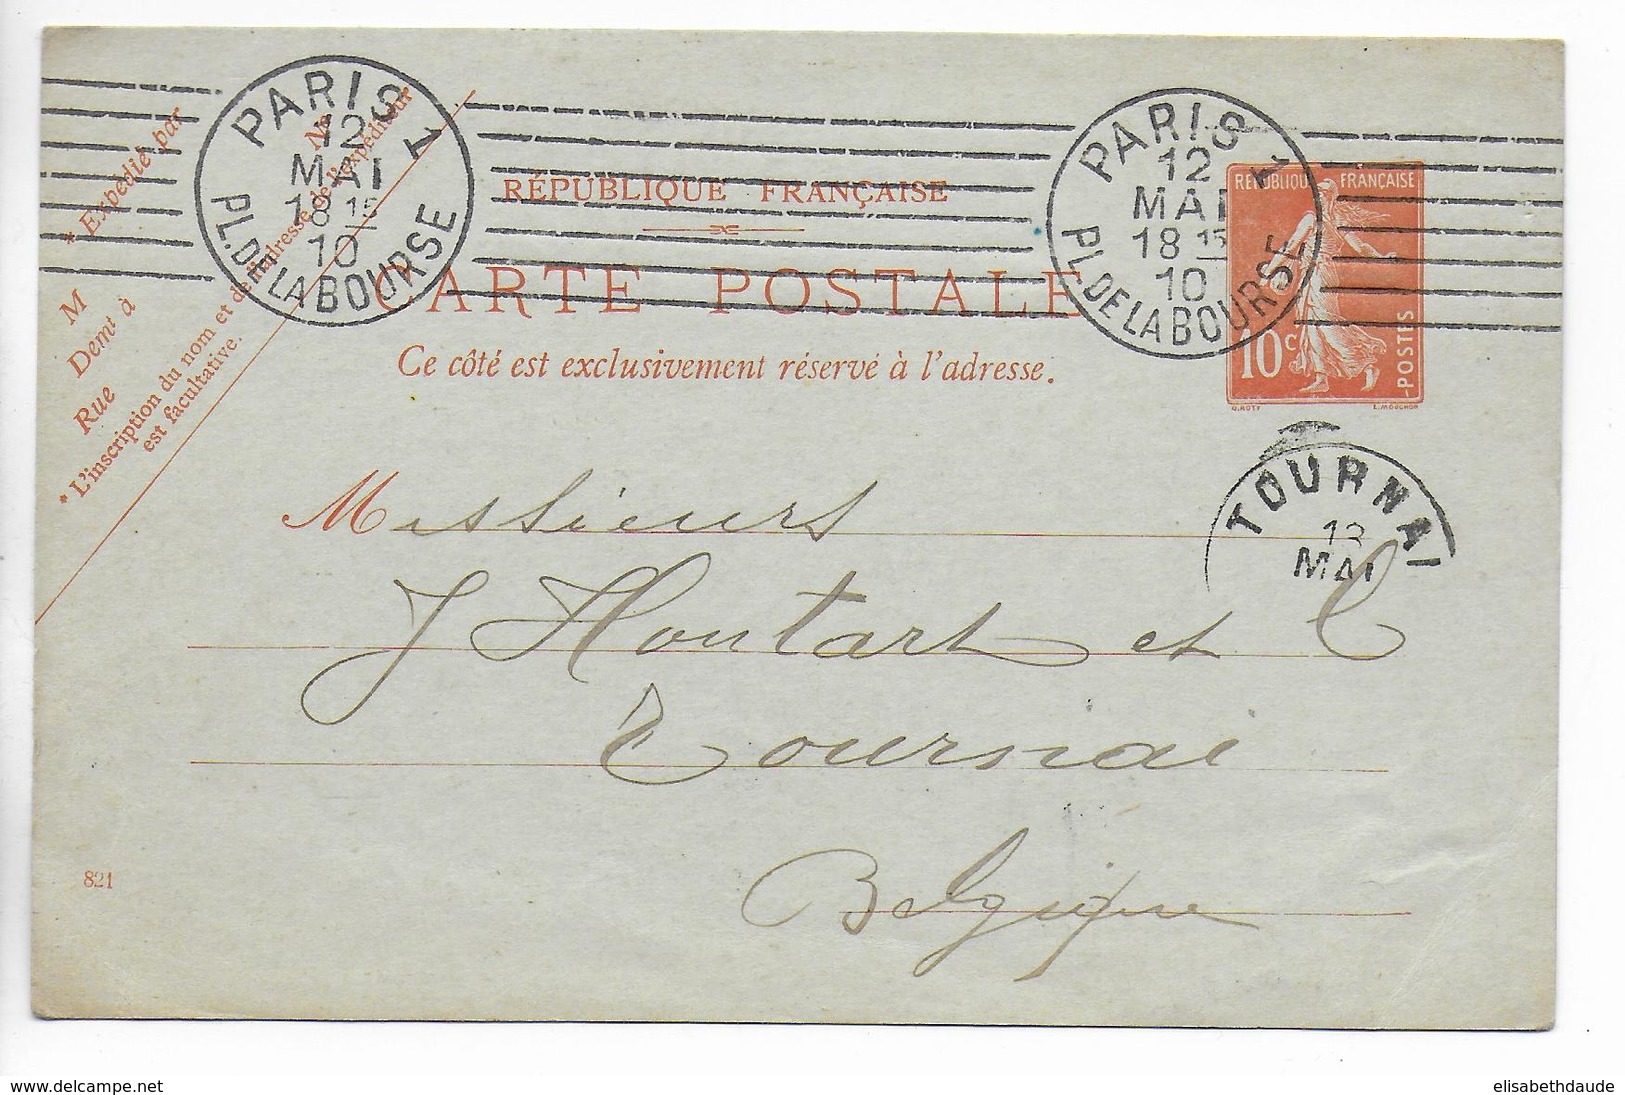 PARIS 1
12
MAI
18 15
10
PL. DE LA BOURSE
PARIS 1
12
MAI
18 15
10
PL. DE LA BOURSE
* Expédié par
M
Demt à
Rue
No
* L'inscription du nom et de l'adresse de l'expéditeur
est facultative.
RÉPUBLIQUE FRANÇAISE
CARTE POSTALE
Ce côté est exclusivement réservé à l'adresse.
REPUBLIQUE FRANÇAISE
10 c
POSTES
O. ROTY
L. MOUCHON
TOURNAI
13
MAI
Messieurs
J Houtart et C
Tournai
Belgique
821
www.delcampe.net
elisabethdaude